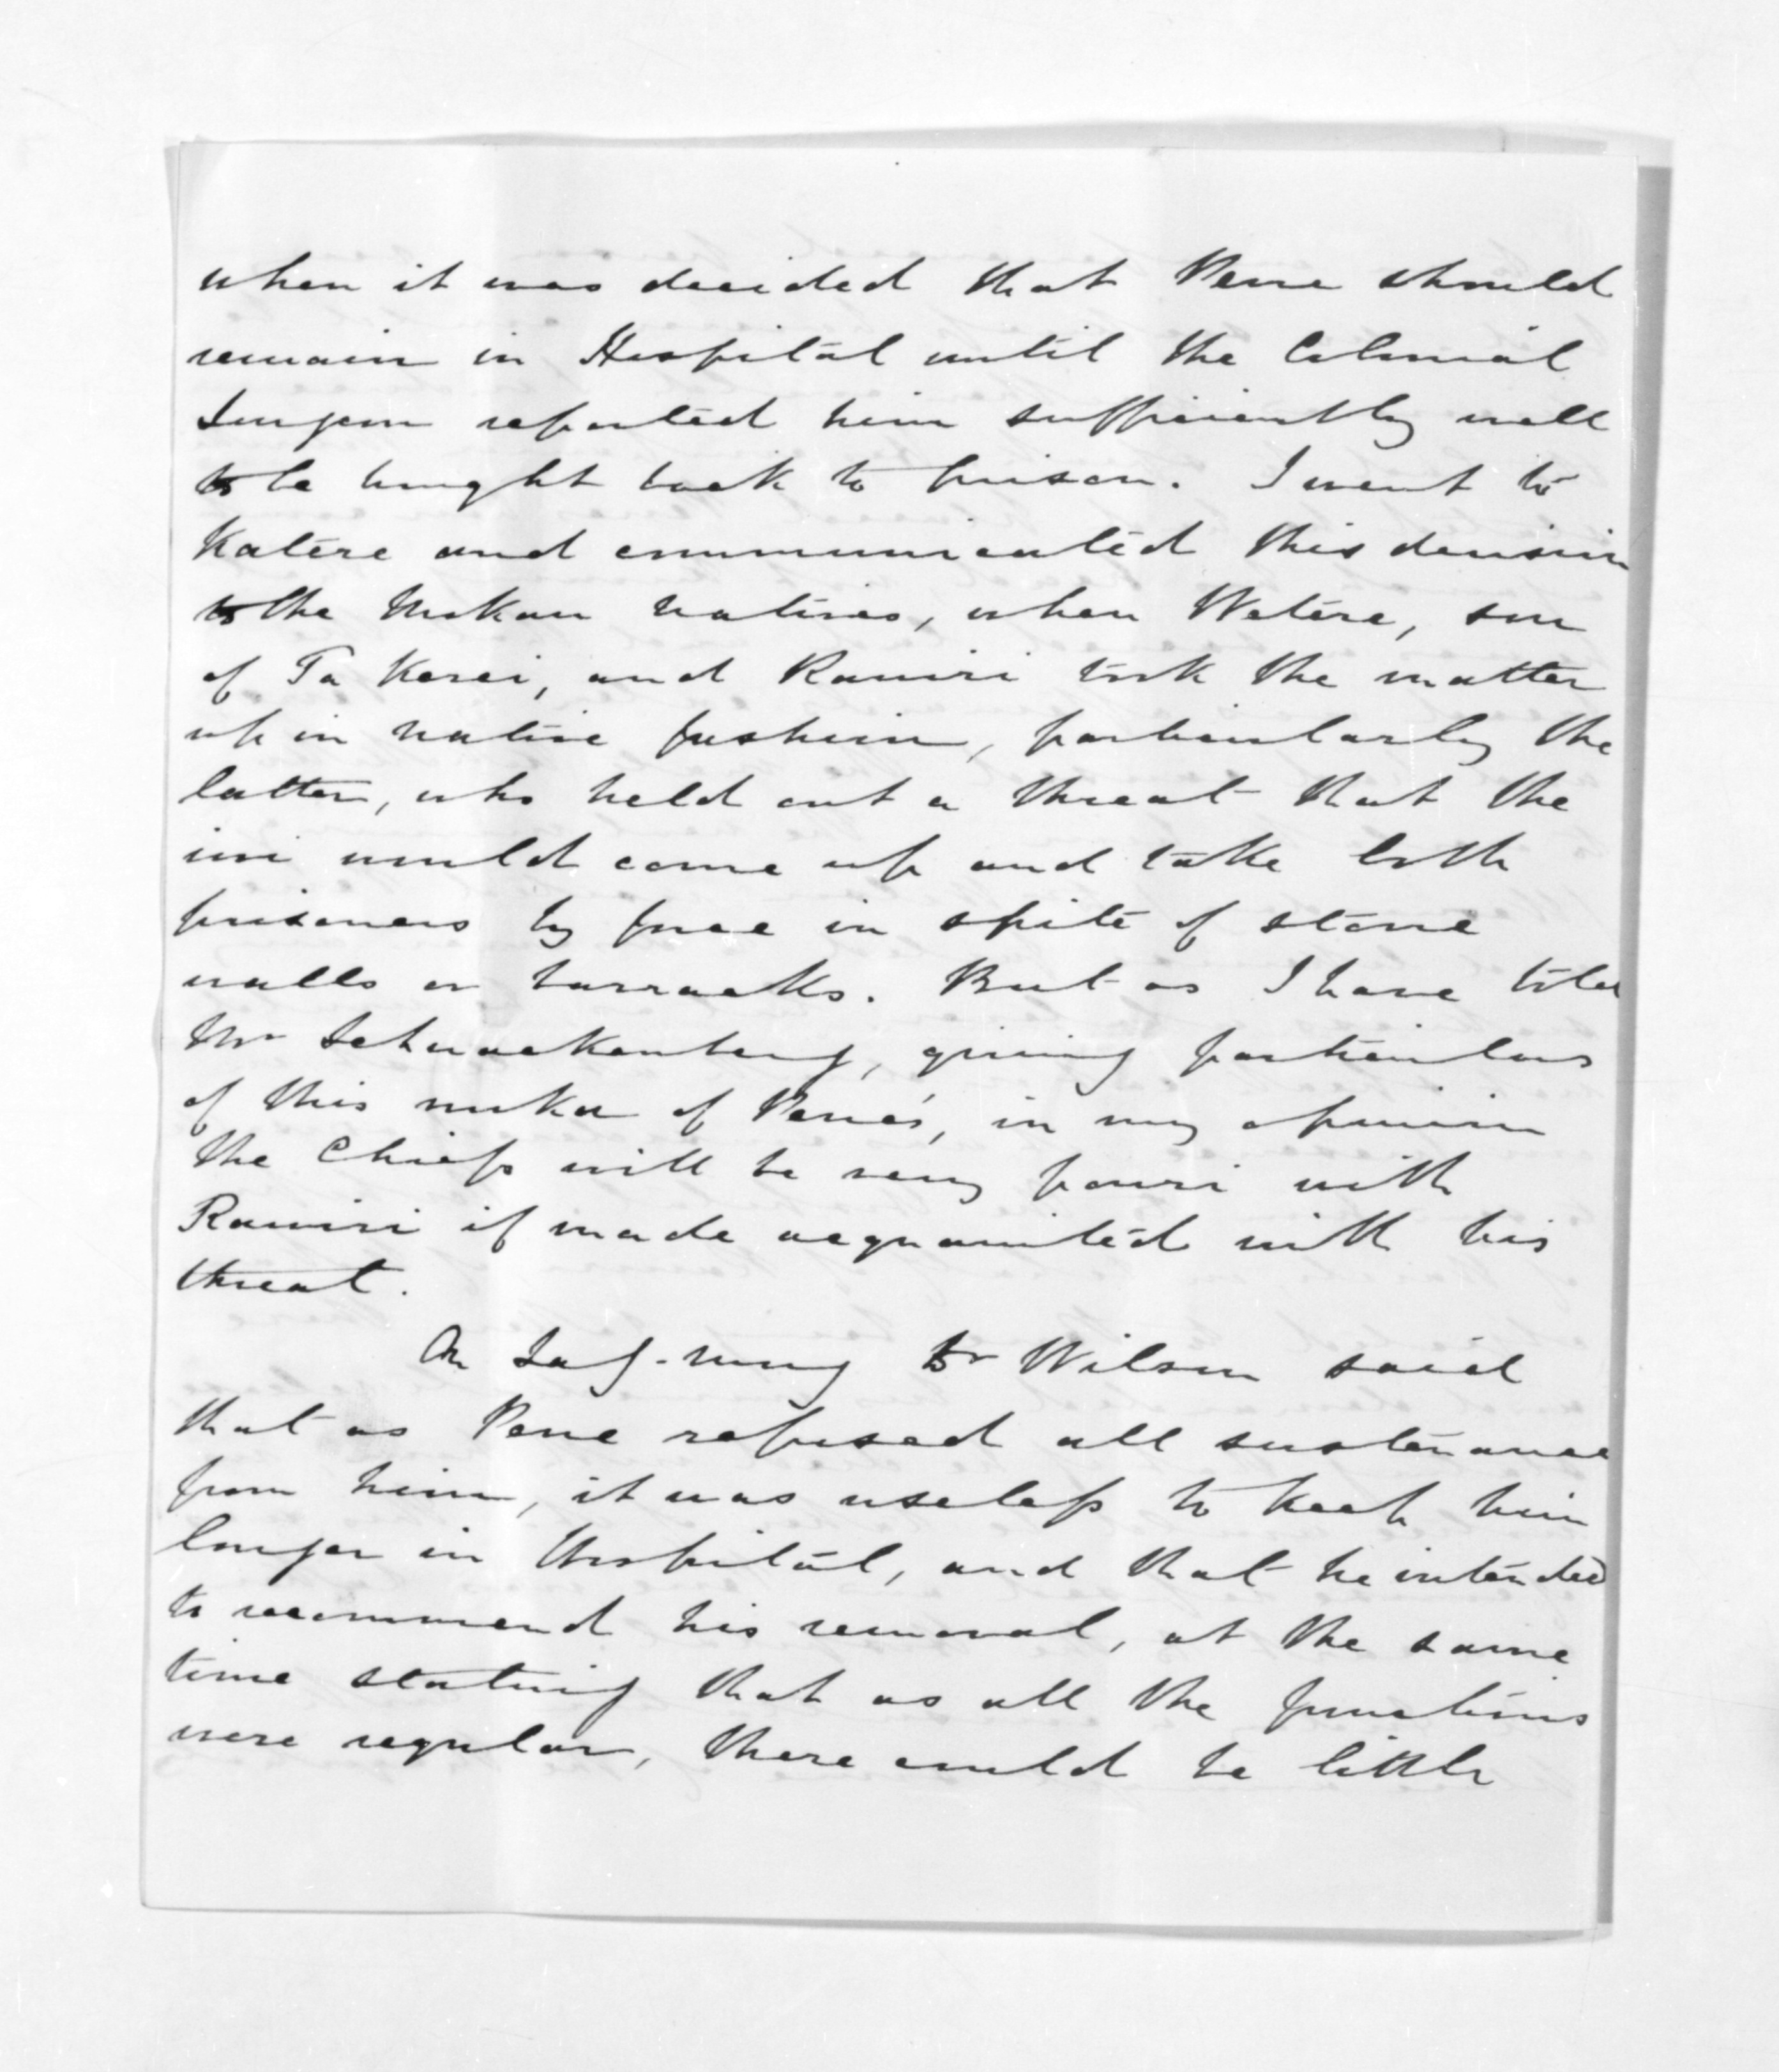 when it was decided that Pene should
remain in Hospital until the Colonial
Surgeon reported him sufficiently well
to be brought back to prison. I went to
Katere and communicated this decision
to the Mokau natives, when Wetere, son
of Ta Kerei, and Rawiri took the matter
up in native fashion, particularly the
latter, who held out a threat that the
iwi would come up and take both
prisoners by force in spite of stone
walls or barracks. But as I have told
Mr Schnackenberg, giving particulars
of this muka of Pene's, in my opinion
the Chiefs will be very pouri with
Rawiri if made acquainted with his
threat.
On Dr Wilson said
that as Pene refused all sustenance
from him, it was useless to keep him
longer in Hospital, and that he intended
to recommend his removal, at the same
time stating that as all the functions
were regular, there could be little